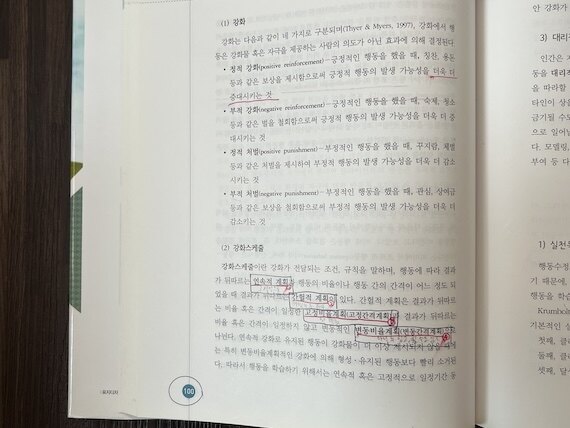 (1) 강화
강화는 다음과 같이 네 가지로 구분되며(Thyer & Myers, 1997), 강화에서 행
동은 강화물 혹은 자극을 제공하는 사람의 의도가 아닌 효과에 의해 결정된다.
• 정적 강화(positive reinforcement)—긍정적인 행동을 했을 때, 칭찬, 용돈
등과 같은 보상을 제시함으로써 긍정적 행동의 발생 가능성을 더욱 더
증대시키는 것
• 부적 강화(negative reinforcement)—긍정적인 행동을 했을 때, 숙제, 청소
등과 같은 벌을 철회함으로써 긍정적 행동의 발생 가능성을 더욱 더 증
대시키는 것
• 정적 처벌(positive punishment)—부정적인 행동을 했을 때, 꾸지람, 체벌
등과 같은 처벌을 제시하여 부정적 행동의 발생 가능성을 더욱 더 감소
시키는 것
• 부적 처벌(negative punishment)—부정적인 행동을 했을 때, 관심, 상여금
등과 같은 보상을 철회함으로써 부정적 행동의 발생 가능성을 더욱 더
감소키는 것
(2) 강화스케줄
강화스케줄이란 강화가 전달되는 조건, 규칙을 말하며, 행동에 따라 결과
가 뒤따르는 연속적 계획과 행동의 비율이나 행동 간의 간격이 어느 정도 되
었을 때 결과가 뒤따르는 간헐적 계획이 있다. 간헐적 계획은 결과가 뒤따르
는 비율 혹은 간격이 일정한 고정비율계획(고정간격계획)과 결과가 뒤따르는
비율 혹은 간격이 일정하지 않고 변동적인 변동비율계획(변동간격계획)으로
나뉜다. 연속적 강화로 유지된 행동이 강화물이 더 이상 제시되지 않을 때에
는 특히 변동비율계획적인 강화에 의해 형성·유지된 행동보다 빨리 소거된
다. 따라서 행동을 학습하기 위해서는 연속적 혹은 고정적으로 일정기간 동
100
안 강화가
3) 대리
인간은 자
동을 대리적
을 따라할
타인이 상을
금기될 수도
으로 일어날
다. 모델링,
부여 등 다
1) 실천
행동수정
기 때문에,
행동을 학습
Krumbolt
기본적인 실
첫째, 클
둘째, 클
셋째, 달